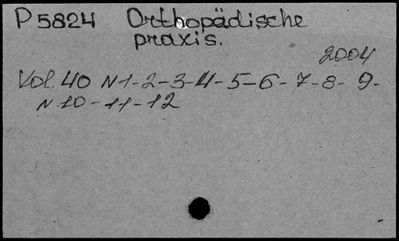 P 5824 Orthopädische
praxis.
2004
Vol. 40 N 1-2-3-4-5-6-7-8-9-
N 10-11-12